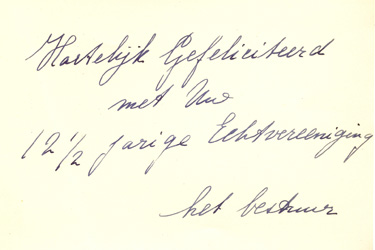 Hartelijk Gefeliciteerd
met Uw
12 1/2 jarige Echtvereeniging
het bestuur